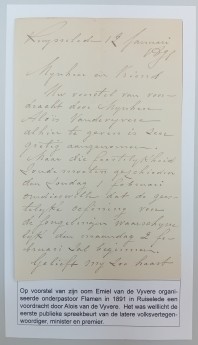 Ruysselede 12 Januari
1891
Mynheer en Vriend
Uw voorstel van voor-
dracht door Mynheer
Aloïs Vandevyvere
alhier te geven is zeer
gretig aangenomen.
Maar die feestelykheid
zoude moeten geschieden
den Zondag 1 februari
omdieswille dat de gees-
telyke oefening van
de jongelingen waarschyn-
lyk den maandag 2 fe-
bruari zal beginnen.
Gelieft my zoo haast
Op voorstel van zijn oom Emiel van de Vyvere organi-
seerde onderpastoor Flamen in 1891 in Ruiselede een
voordracht door Aloïs van de Vyvere. Het was wellicht de
eerste publieke spreekbeurt van de latere volksvertegen-
woordiger, minister en premier.